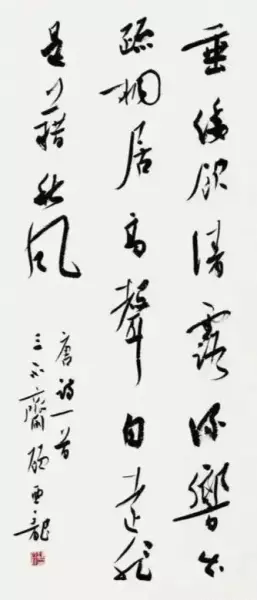 垂緌飲清露流響出
疏桐居高聲自遠非
是藉秋風
唐詩一首
三不齋顧亞龍